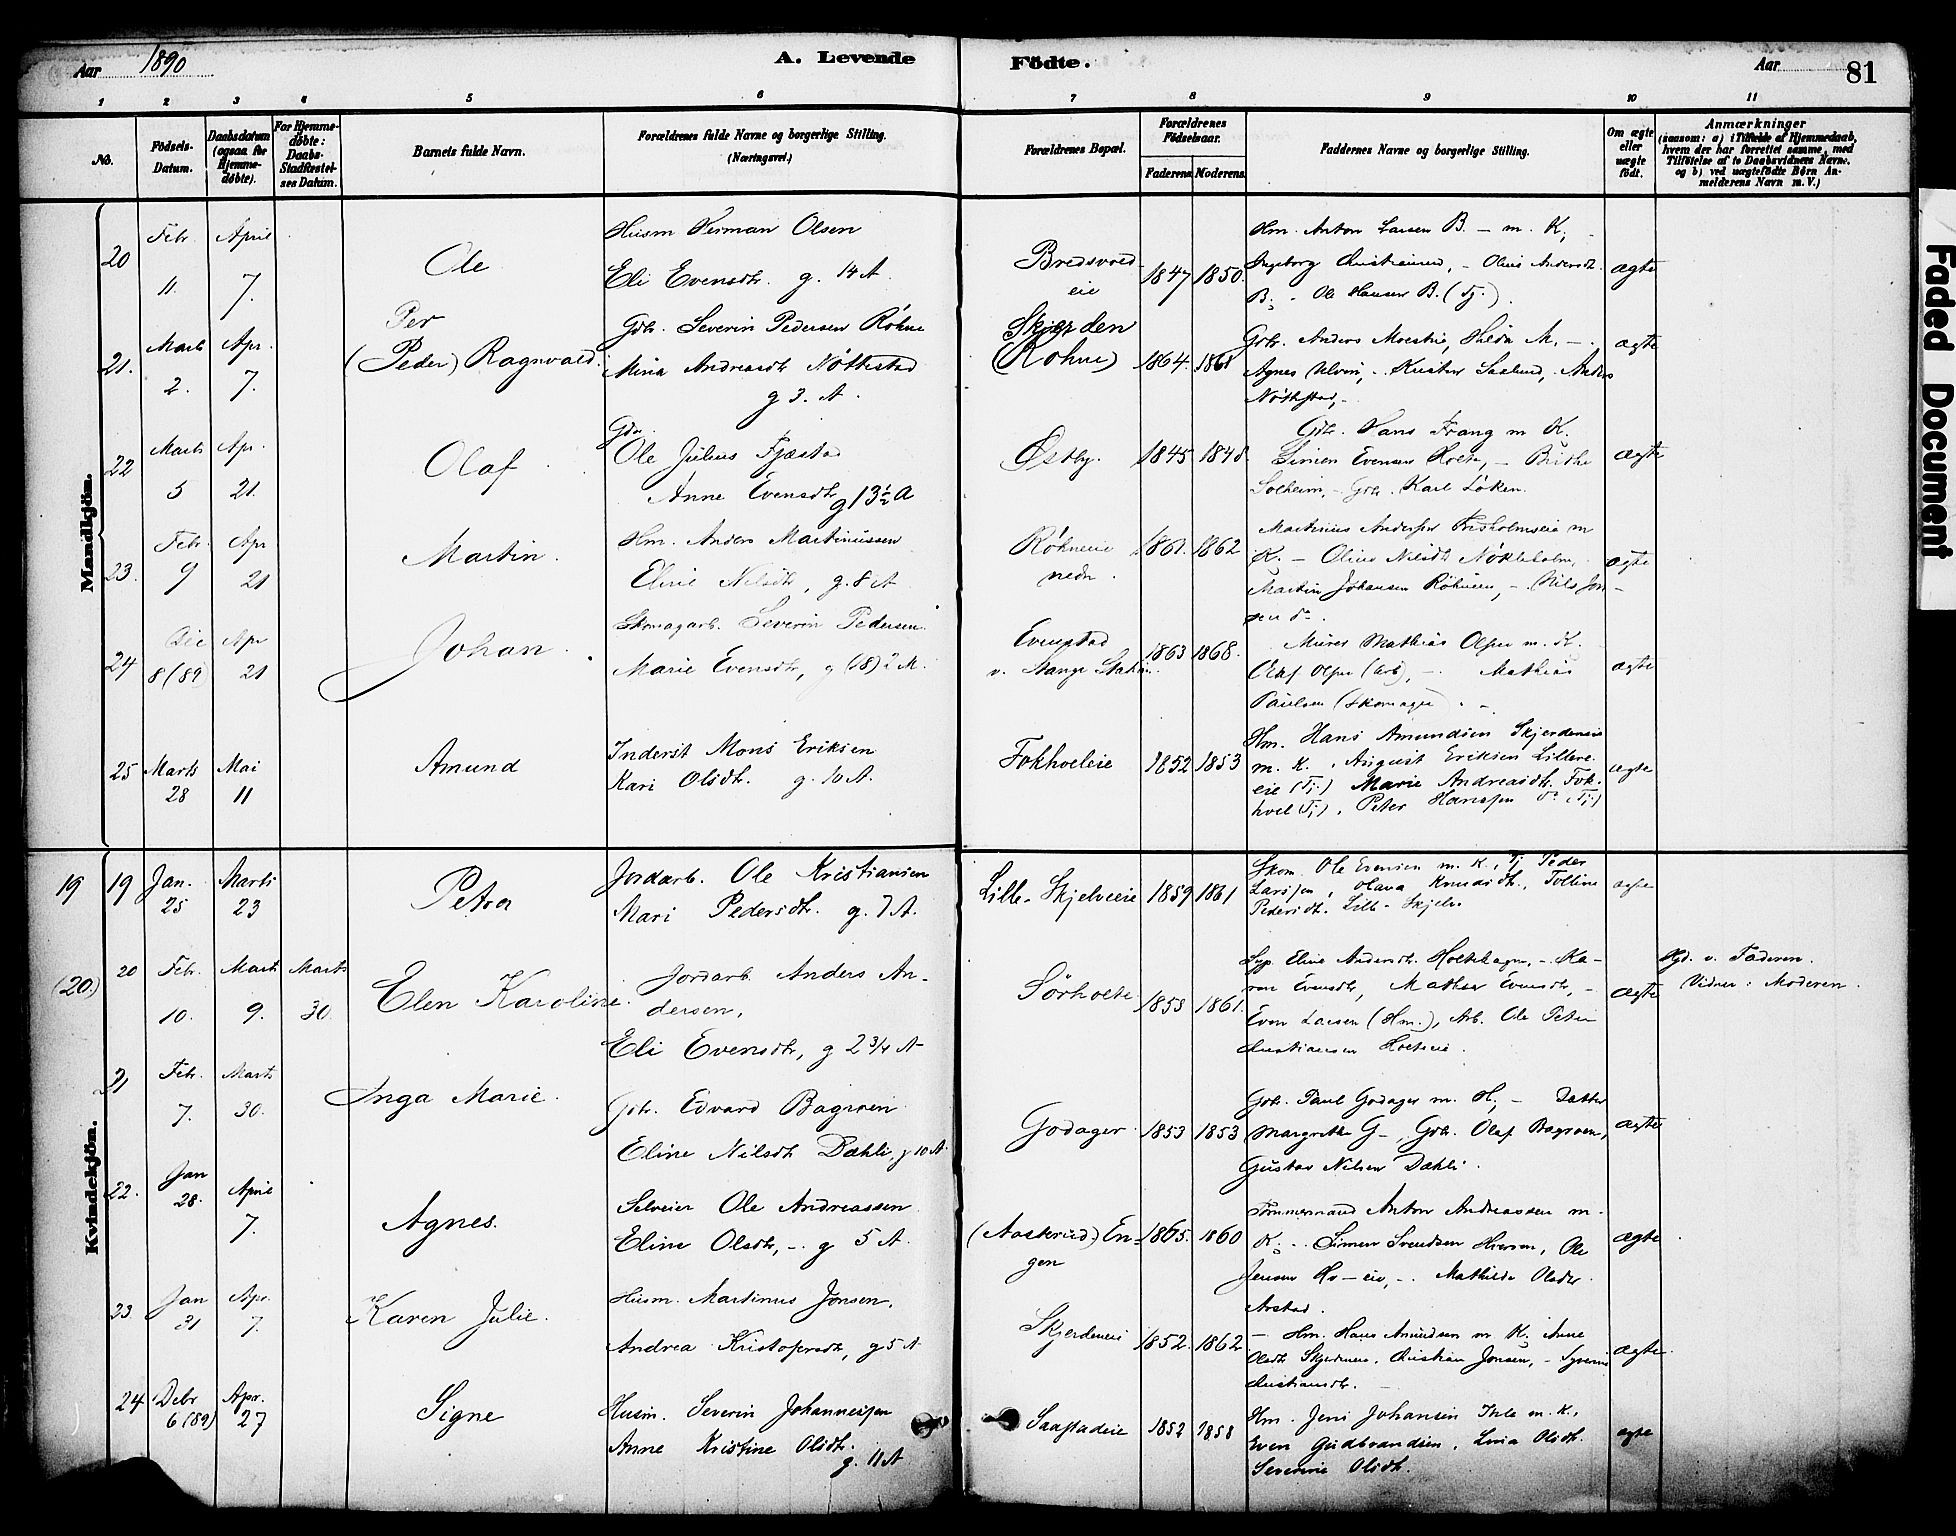 Aar 1890
A. Levende Födte.
Aar
81
1 2 3 4 5 6 7 8 9 10 11
No.
Födsels-Datum.
Daabsdatum (ogsaa for Hjemmedöbte).
For Hjemmedöbte: Daabs-Stadfæstelses Datum.
Barnets fulde Navn.
Forældrenes fulde Navne og borgerlige Stilling.
(Næringsvei.)
Forældrenes Bopæl.
Forældrenes Födselsaar.
Faderens. Moderens.
Faddernes Navne og borgerlige Stilling.
Om ægte eller uægte födt.
Anmærkninger
(saasom: a) i Tilfælde af Hjemmedaab,
hvem der har forrettet samme, med
Tilföielse af to Daabsvidners Navne.
og b) ved uægtefödte Börn An-
melderens Navn m. V.)
Mandkjön.
20 Febr. 11. April 7.
Ole
Husm Herman Olsen
Eli Evensdtr. g. 14 A
Bredsvoldeie
1847 1850.
Hm. Anton Larsen B. – m. K;
Ole Hansen B. (Tj.)
ægte
21. Marts 2. Apr. 7.
Per
(Peder) Ragnvald
Gbr. Severin Pedersen Röhne
Mina Andreasdtr Nöttestad
g 3. A.
Skjerden
(Röhne)
1864. 1861
Gbr. Anders Moestue, Hilda M. –
Agnes Ulven, – Kristen Saelund, Anders
Nöttestad, –
ægte
22 Marts 5 Apr. 21.
Olaf
Gbr.
Ole Julius Fjæstad
Anne Evensdtr g 13½ A
Østby.
1845 1848.
Gbr. Hans Frang m K.
Simen Evensen Holte, –
Solheim, – Gbr. Karl Löken.
ægte
23. Febr. 9 Apr 21
Martin.
Hm. Anders Martiniussen
Eline Nilsdtr, g. 8 A
Röhneeie
nedr.
1861. 1862
K. – Oline Nilsdtr Nökleholm,
Martin Johansen Röhneeie, – Nils Jon-
sen do.
ægte
24 Dec 8 (89) Apr 21
Johan.
Skomagarb. Severin Pedersen
Marie Evensdtr, g (18) 2 M.
Evenstad
v. Stange Station.
1863 1868.
Murer Mathias Olsen m. K.
Olaf Olsen (Arb), – Mathias
Paulsen (Skomager) –
ægte
25 Marts 28 Mai 11
Amund
Inderst Mons Eriksen
Kari Olsdtr. g. 10 A.
Fokholeie
1852 1853
Hm. Hans Amundsen Skjerdeneie
m. K., August Eriksen Lillere-
eie (Tj.) Marie Andreasdtr. Fok-
hoel (Tj), Peter Hanssen do (Tj.)
ægte
Kvindekjön.
19 19 Jan. 25 Marts 23
Petra
Jordarb. Ole Kristiansen
Mari Pedersdtr. g. 7 A.
Lille-Skjelveeie
1859 1861
Skom. Ole Evensen m. K., Tj Peder
Larssen, Olava Knudsdtr., Tolline
Pedersdtr. Lille-Skjelv.
ægte
(20.) 20 Febr. 10. Marts 9. Marts 30.
Elen Karoline.
Jordarb. Anders An-
dersen,
Eli Evensdtr, g 2 3/4 A
Sörholte
1858 1861.
Eline Andersdtr. Holtehagen, – Ka-
ren Evensdtr, Mathea Evensdtr, –
Even Larsen (Hm.), Arb. Ole Peter
Christiansen Holteeie.
ægte
Hjd. v. Faderen.
Vidner: Moderen.
21 Febr. 7. Marts 30.
Inga Marie.
Gbr. Edvard Bagroen
Eline Nilsdtr Dæhli, g 10 A
Godager
1853 1853
Gbr. Paul Godager m. H; – Datter
Margrethe G–, Gbr. Olaf Bagroen,
Gustav Nilsen Dæhli.
ægte
22. Jan 28. April 7.
Agnes.
Selveier Ole Andreassen
Eline Olsdtr, –. g 5 A.
(Aaskrud) En-
gen
1865. 1860
Tömmermand Anton Andreassen m.
K; – Simen Svendsen, Ole
Jensen Ho–eie, – Mathilde Olsdtr
Arstad.
ægte
23 Jan 31 Apr. 7.
Karen Julie.
Husm. Martinus Jonsen,
Andrea Kristofersdtr, g 5 A
Skjerdeneie
1852. 1862
– Hm. Hans Amundsen m K; Anne
Olsdtr Skjerdeneie, Christian Jonsen, –
Christiansdtr. –
ægte.
24 Debr 6 (89) Apr. 27
Signe
Husm. Severin Johannessen
Anne Kristine Olsdtr.
g. 11 A
Saastadeie
1852 1858
Hm. Jens Johansen Ihle m. K.,
Even Gudbrandsen, Lina Olsdtr.
Severine Olsdtr.
ægte
Faded Document